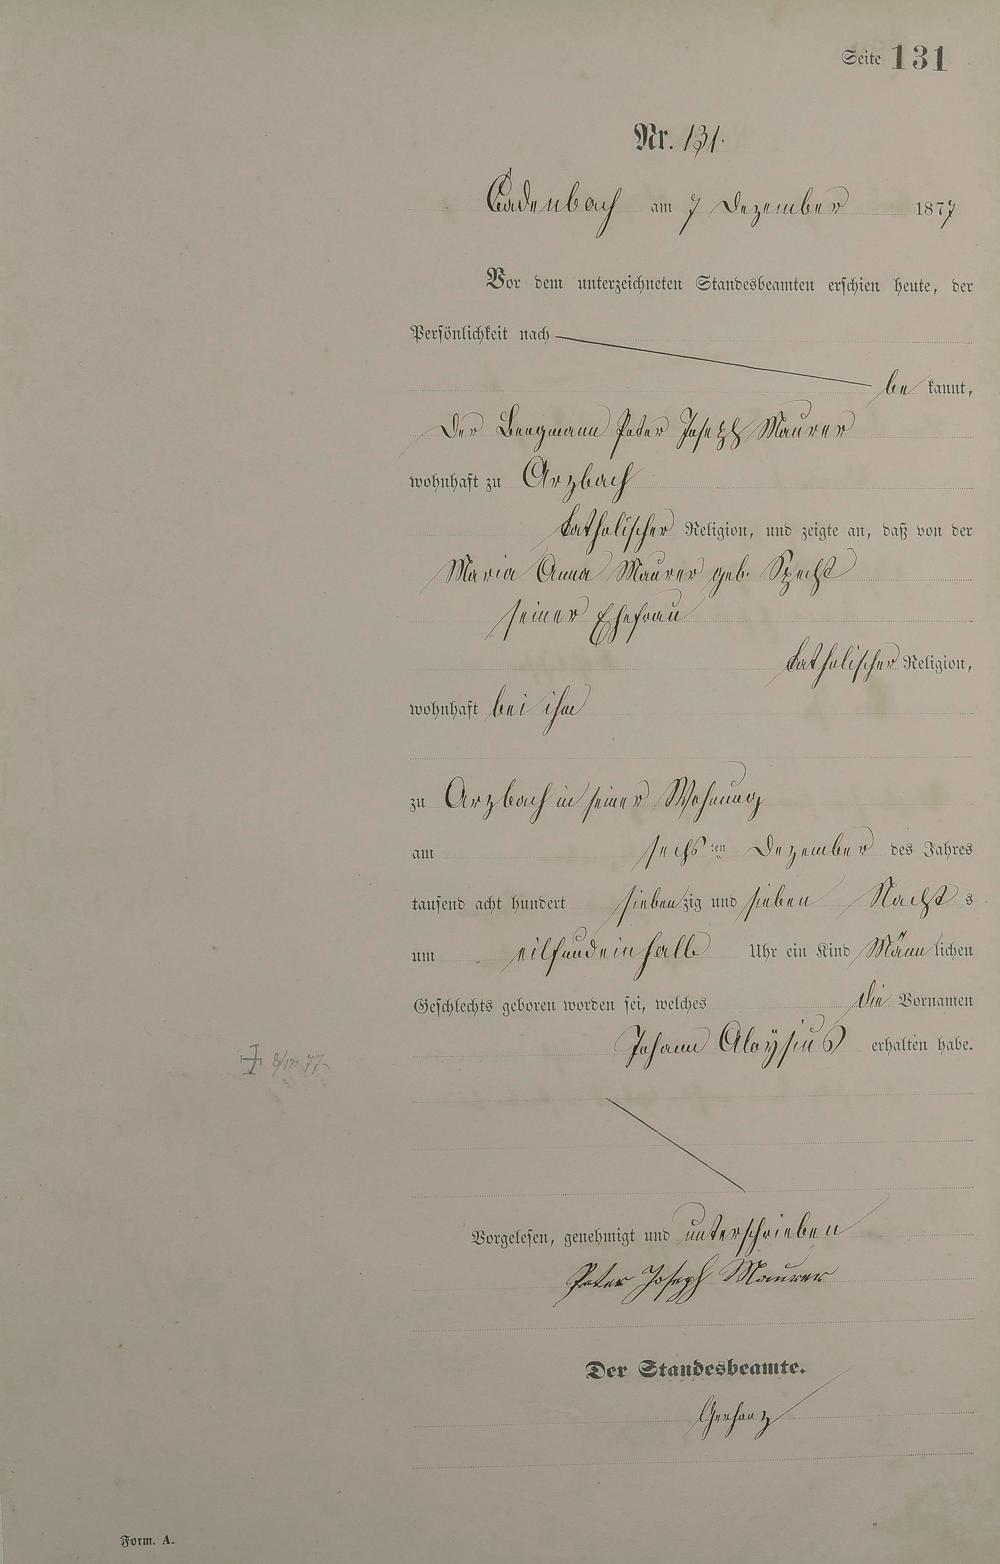 Seite 131
Nr. 131.
Cadenbach am 7 Dezember 1877
Vor dem unterzeichneten Standesbeamten erschien heute, der
Persönlichkeit nach
be kannt,
Der Bergmann Peter Joseph Maurer
wohnhaft zu Arzbach
katholischer Religion, und zeigte an, daß von der
Maria Anna Maurer geb. Specht
seiner Ehefrau
katholischer Religion,
wohnhaft bei ihm
zu Arzbach in seiner Wohnung
am sechsten Dezember des Jahres
tausend acht hundert siebenzig und sieben Nacht s
um eilfundeinhalb Uhr ein Kind Männlichen
Geschlechts geboren worden sei, welches die Vornamen
Johann Aloÿsius erhalten habe.
† 8/12 77.
Vorgelesen, genehmigt und unterschrieben
Peter Joseph Maurer
Der Standesbeamte.
Gerharz
Form. A.